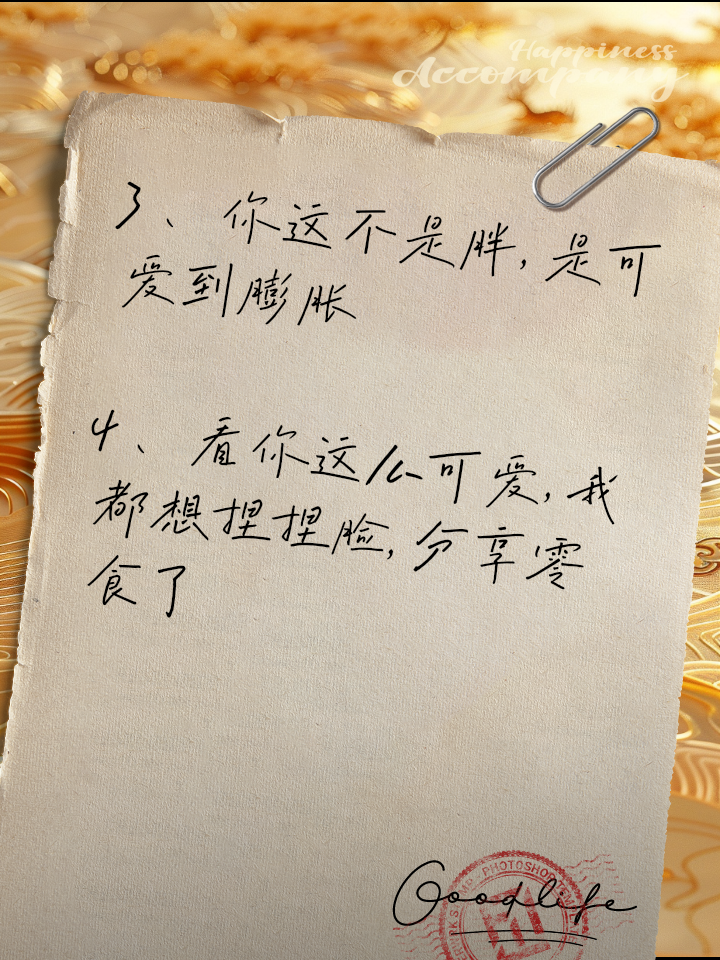 Happiness
Accompany
3、你这不是胖,是可
爱到膨胀
4、看你这么可爱,我
都想捏捏脸,分享零
食了
Goodlife